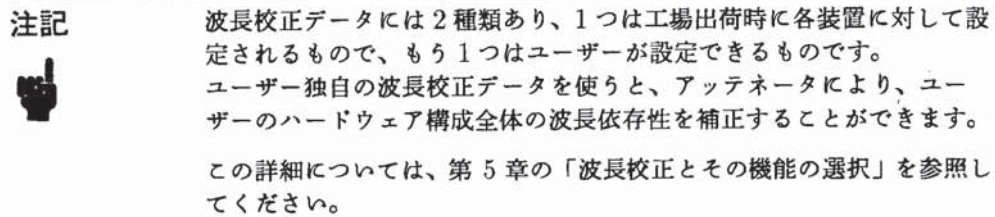 注記
波長校正データには２種類あり、１つは工場出荷時に各装置に対して設
定されるもので、もう１つはユーザーが設定できるものです。
ユーザー独自の波長校正データを使うと、アッテネータにより、ユー
ザーのハードウェア構成全体の波長依存性を補正することができます。
この詳細については、第 5 章の「波長校正とその機能の選択」を参照し
てください。